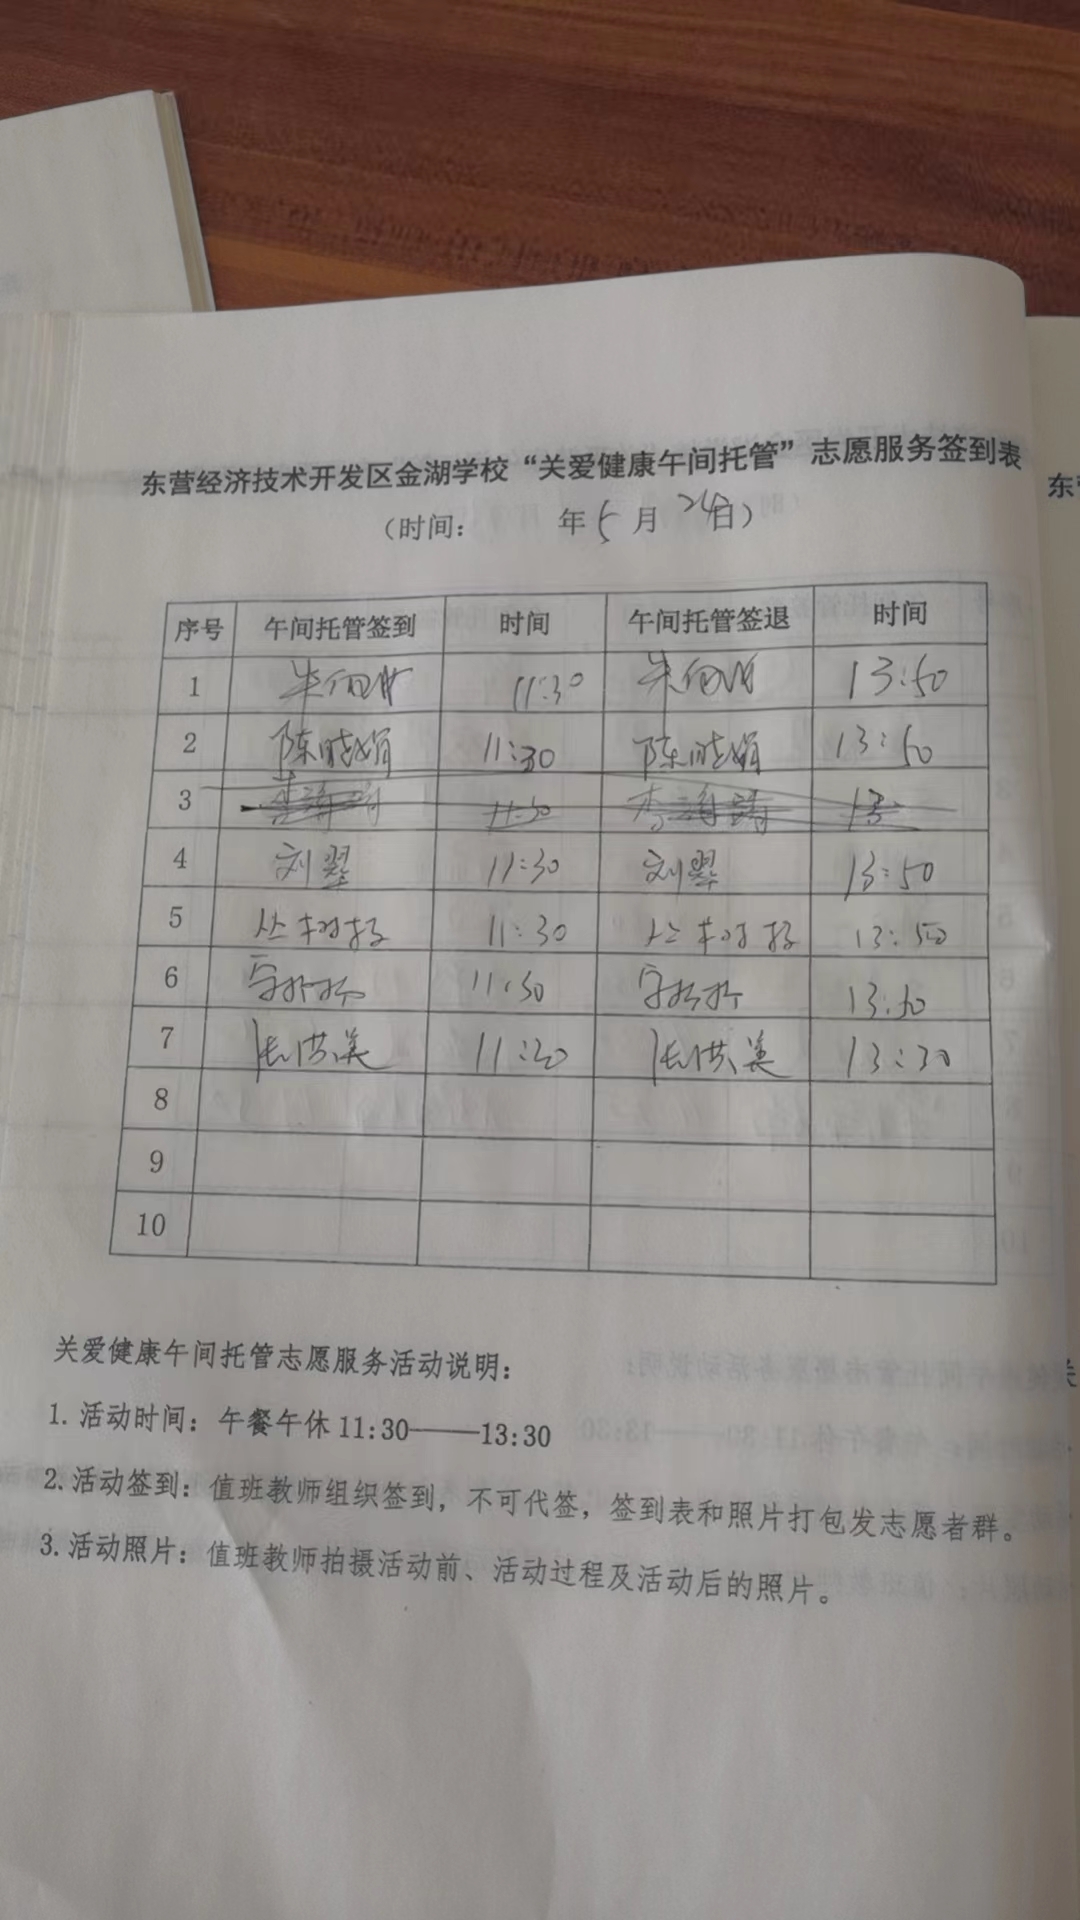 东营经济技术开发区金湖学校“关爱健康午间托管”志愿服务签到表
(时间: 年5月24日)
序号 午间托管签到 时间 午间托管签退 时间
1 11:30 13:50
2 陈晓娟 11:30 陈晓娟 13:50
3 11:30 13:
4 刘翠 11:30 刘翠 13:50
5 11:30 13:50
6 11:30 13:50
7 张洪美 11:30 张洪美 13:30
8
9
10
关爱健康午间托管志愿服务活动说明:
1.活动时间: 午餐午休11:30——13:30
2.活动签到: 值班教师组织签到, 不可代签, 签到表和照片打包发志愿者群。
3.活动照片: 值班教师拍摄活动前、活动过程及活动后的照片。
东
关